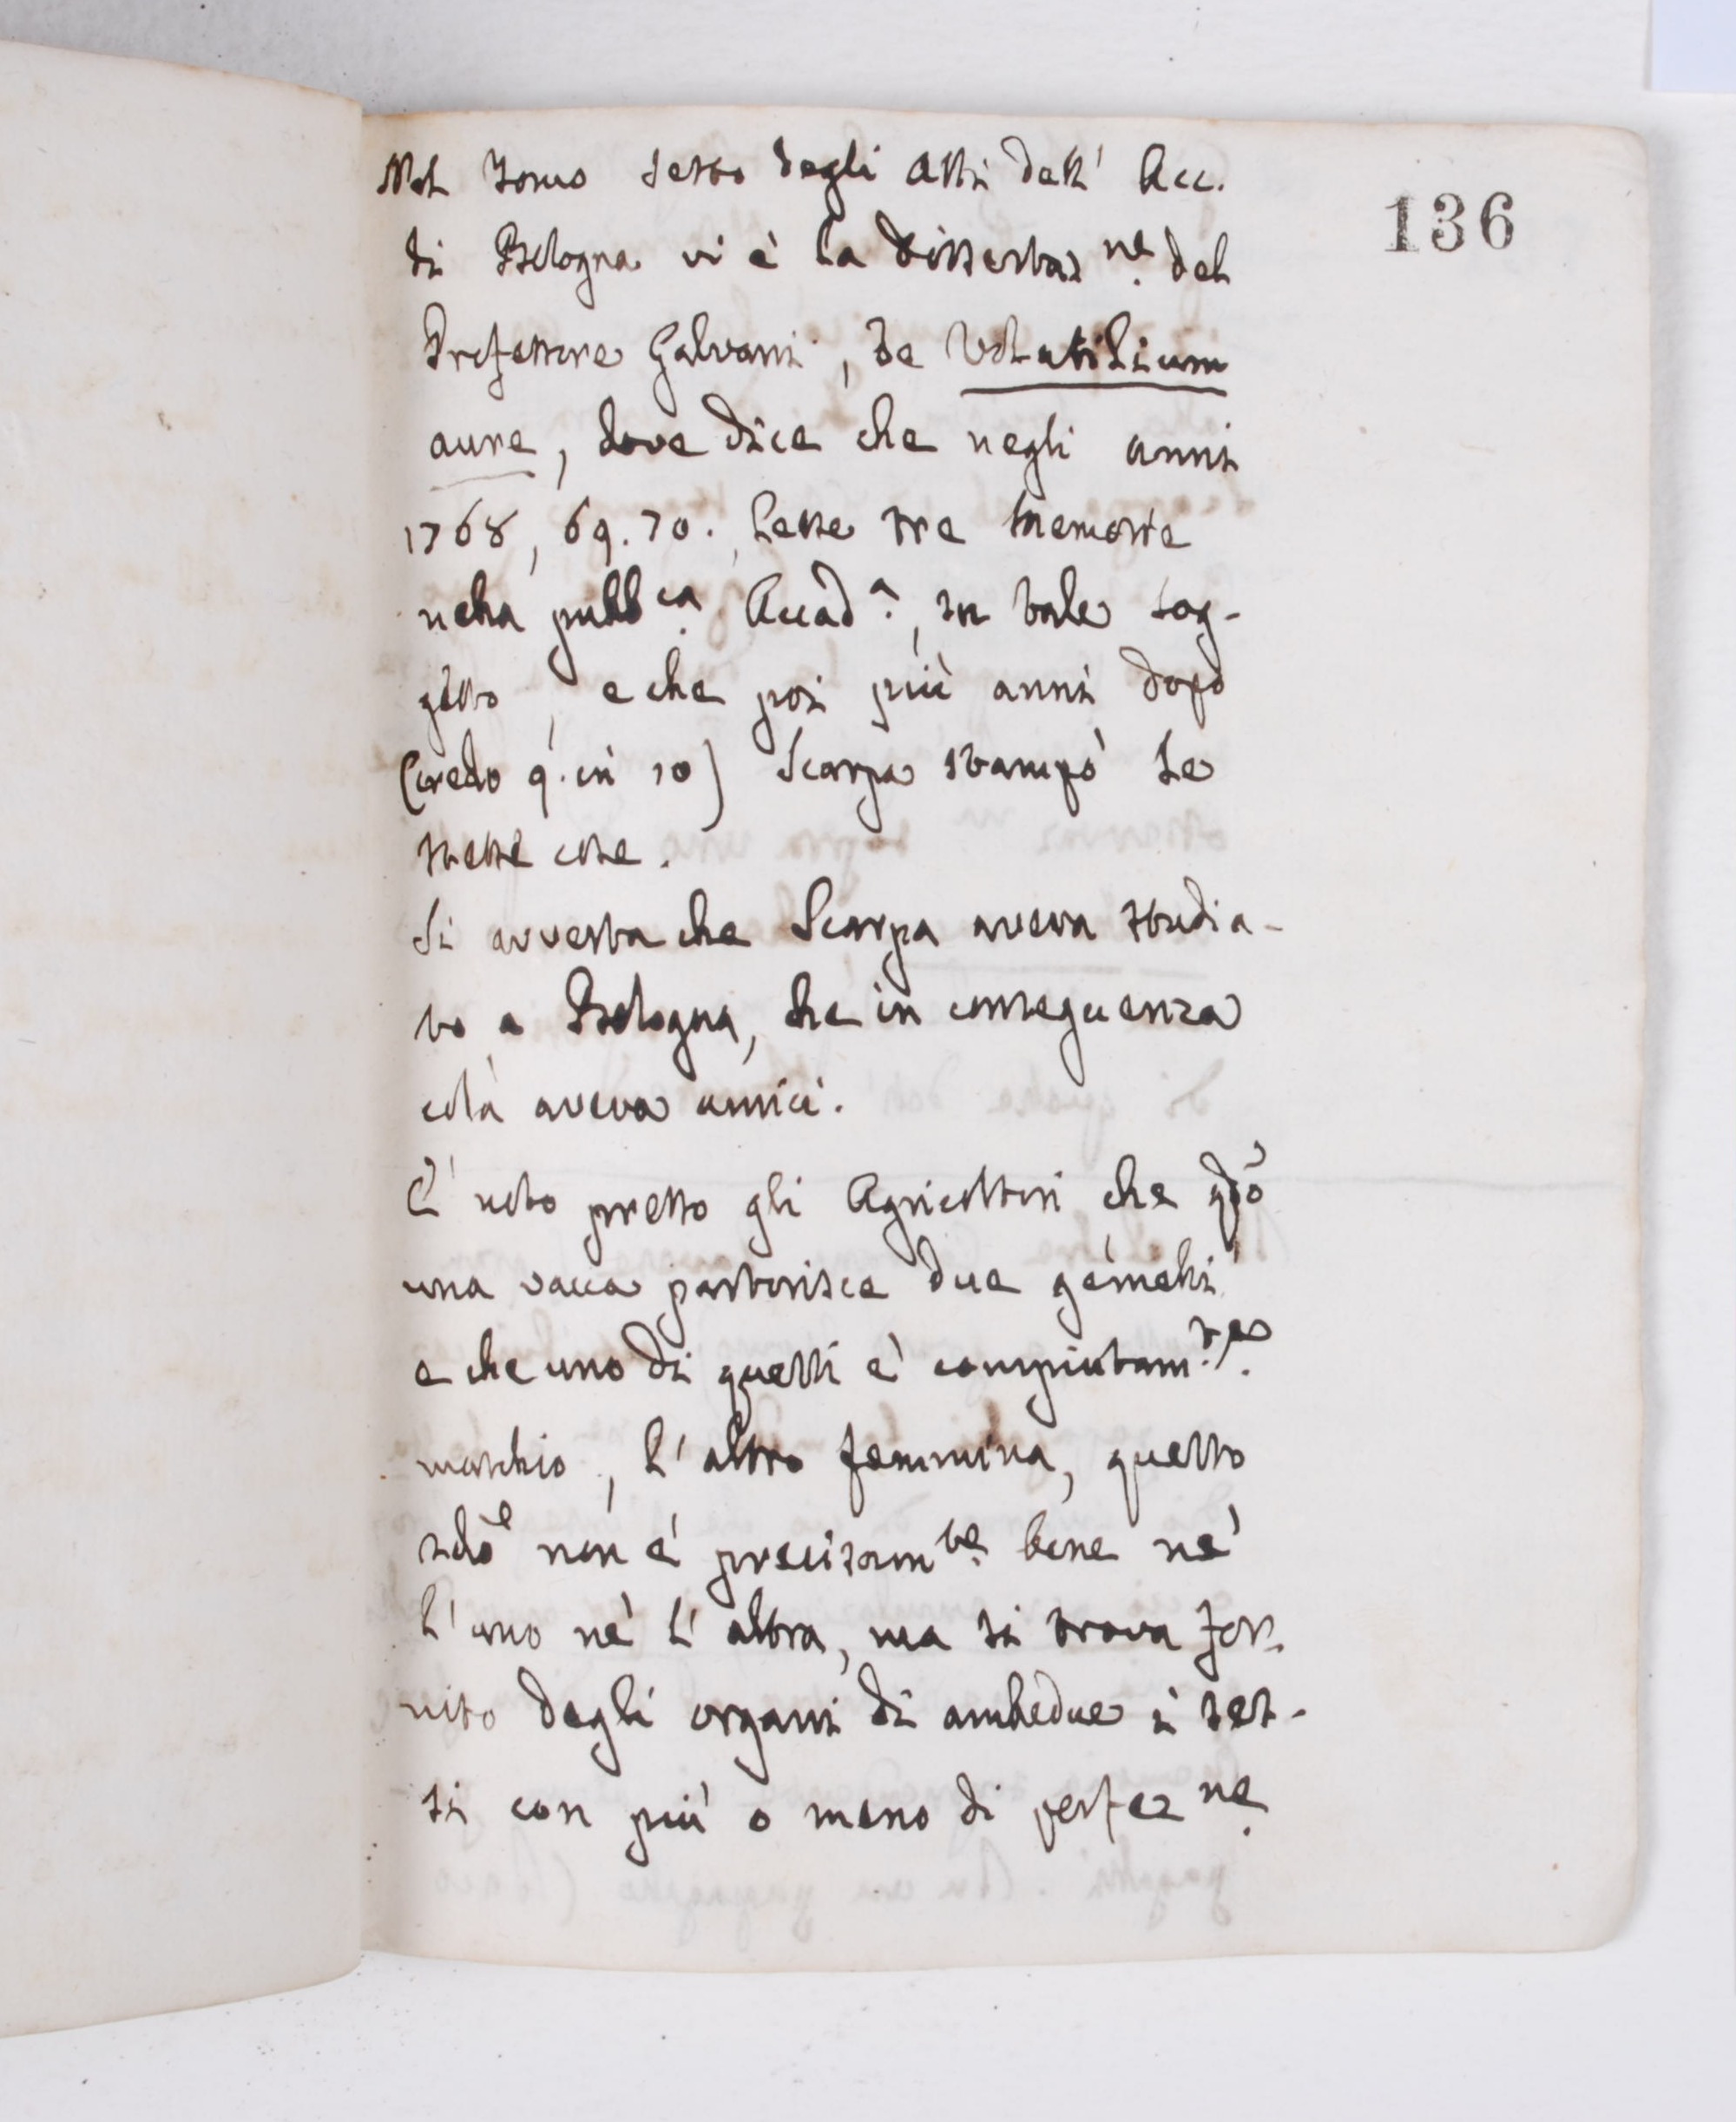 136
Nel Tomo sesto degli Atti dell' Acc.
di Bologna vi è la Dissertaz.ne del
Professore Galvani, de Volatilium
aure, dove dice che negli anni
1768, 69. 70., lesse tre memorie
nella pubb.ca Accad.a, in tale sog-
getto, e che poi più anni dopo
(credo 9. in 10) Scarpa stampò le
stesse cose.
Si avverta che Scarpa aveva studia-
to a Bologna, che in conseguenza
colà aveva amici.
È noto presso gli Agricoltori che qdō
una vacca partorisce due gemelli
e che uno di questi è compiutam.te
maschio, l'altro femmina, questo
non è precisam.te bene nè
l'uno nè l'altra, ma si trova for-
nito degli organi di ambedue i ses-
si con più o meno di perfez.ne